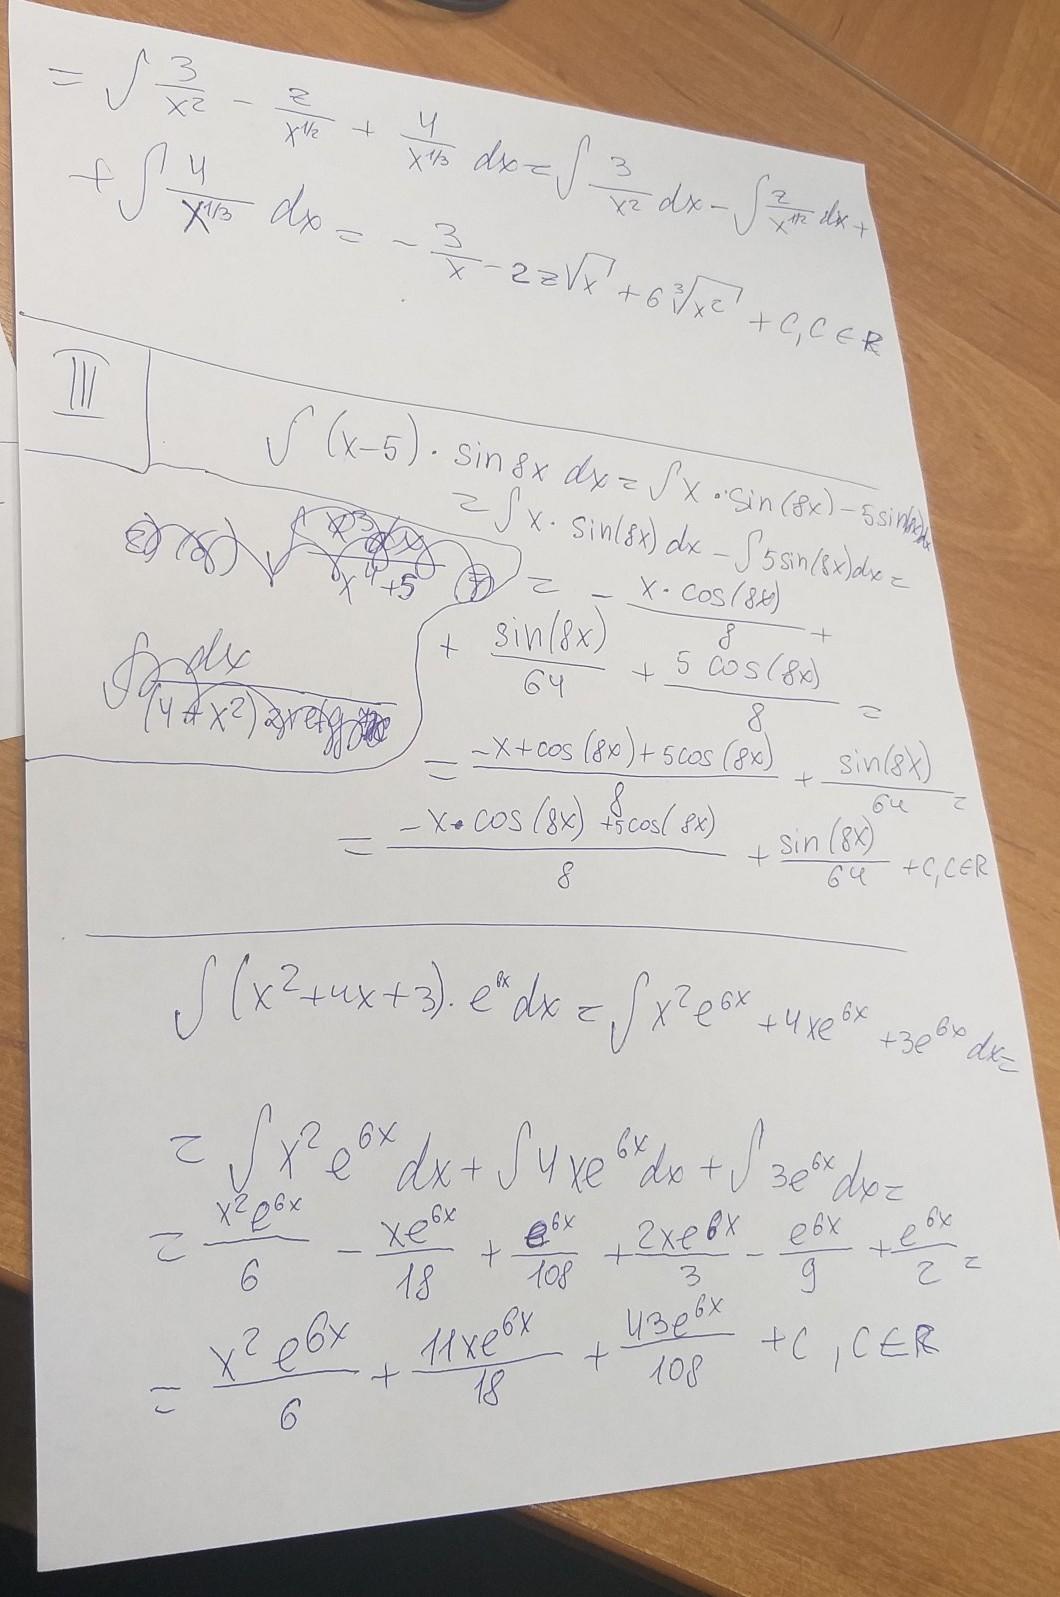 = ∫ 3/x² - z/x^1/2 + 4/x^1/3 dx = ∫ 3/x² dx - ∫ z/x^1/2 dx +
+ ∫ 4/x^1/3 dx = - 3/x - 2z√x + 6∛x² + C, C ∈ ℝ
III
∫ (x-5) · sin 8x dx = ∫ x · sin(8x) - 5 sin(8x) dx
= ∫ x · sin(8x) dx - ∫ 5 sin(8x) dx =
= - x · cos(8x)/8 +
+ sin(8x)/64 + 5 cos(8x)/8 =
= -x + cos(8x) + 5cos(8x)/8 + sin(8x)/64 =
= -x · cos(8x) + 5cos(8x)/8 + sin(8x)/64 + C, C ∈ ℝ
∫ (x² + 4x + 3) · e^6x dx = ∫ x² e^6x + 4xe^6x + 3e^6x dx =
= ∫ x² e^6x dx + ∫ 4xe^6x dx + ∫ 3e^6x dx =
= x² e^6x/6 - xe^6x/18 + e^6x/108 + 2xe^6x/3 - e^6x/9 + e^6x/2 =
= x² e^6x/6 + 11xe^6x/18 + 43e^6x/108 + C, C ∈ ℝ